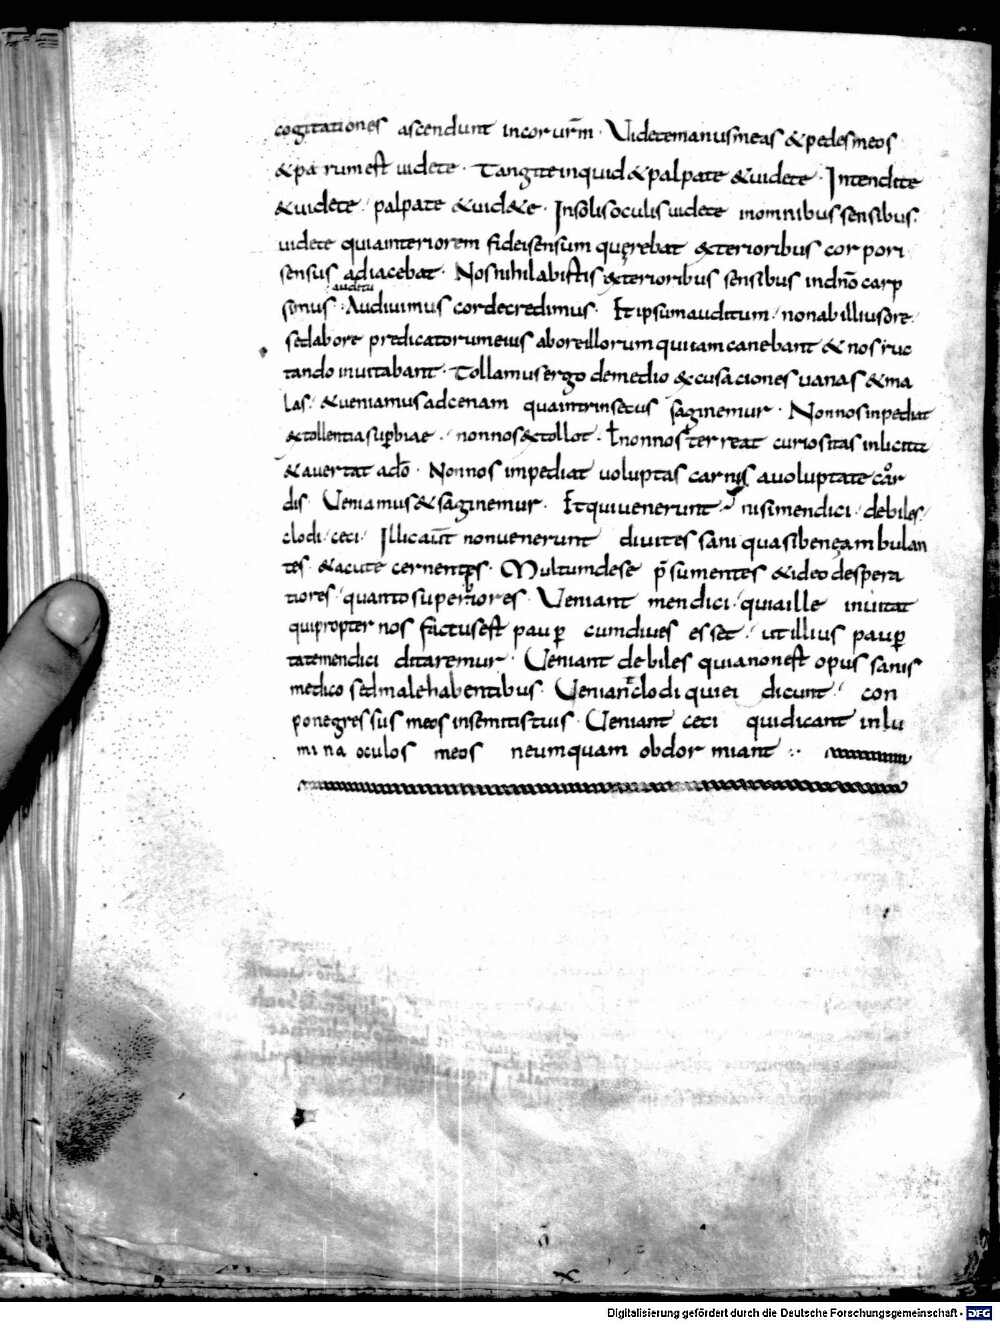 cogitationes ascendunt incor urm̄ · Videtemanusmeas &pedesmeos
&pa rumest uidete · Tangiteinquid&palpate &uidete · Intendite
&uidete / palpate &uid&e · Insolisoculisuidete inomnibussensibus·
uidete quiainteriorem fideisensum quęrebat &terioribus cor pori
sensus adiacebat · Nosnihilabistis &terioribus sensibus indn̄o carp
auditu
simus · Audiuimus cordecredimus · Etipsumauditum / nonabilliusore·
sedabore predicatorumeius aboreillorumquiiamcanebant & nos ruc
tando inuitabant · Tollamusergo demedio &cusaciones uanas &ma
las / &ueniamusadcenam quaintrinsecus saginemur · Nonnosinpediat
&tollentiasuꝑbiae / nonnos&tollot · ł nonnos terreat curiositas inlicita
&auertat adō · Nonnos impediat uoluptas carnis auoluptate cor
dis · Veniamus&saginemur · Etquiuenerunt / nisimendici · debiles /
clodi · ceci · Illicaut̄ nonuenerunt diuites sani quasibeneambulan
tes · &acute cernentes · Multumdese p̄sumentes &ideo despera
tiores / quantosuperbiores · Veniant mendici / quiaille inuitat
quipropter nos factusest pauꝑ cumdiues esset / utillius pauꝑ
tatemendici ditaremur · Veniant debiles quianonest opus sanis
medico sedmalehabentibus · Veniantclodi quiei dicunt / con
ponegressus meos insemitistuis · Veniant ceci quidicant inlu
mi na oculos meos neumquam obdor miant ·:
Digitalisierung gefördert durch die Deutsche Forschungsgemeinschaft - DFG